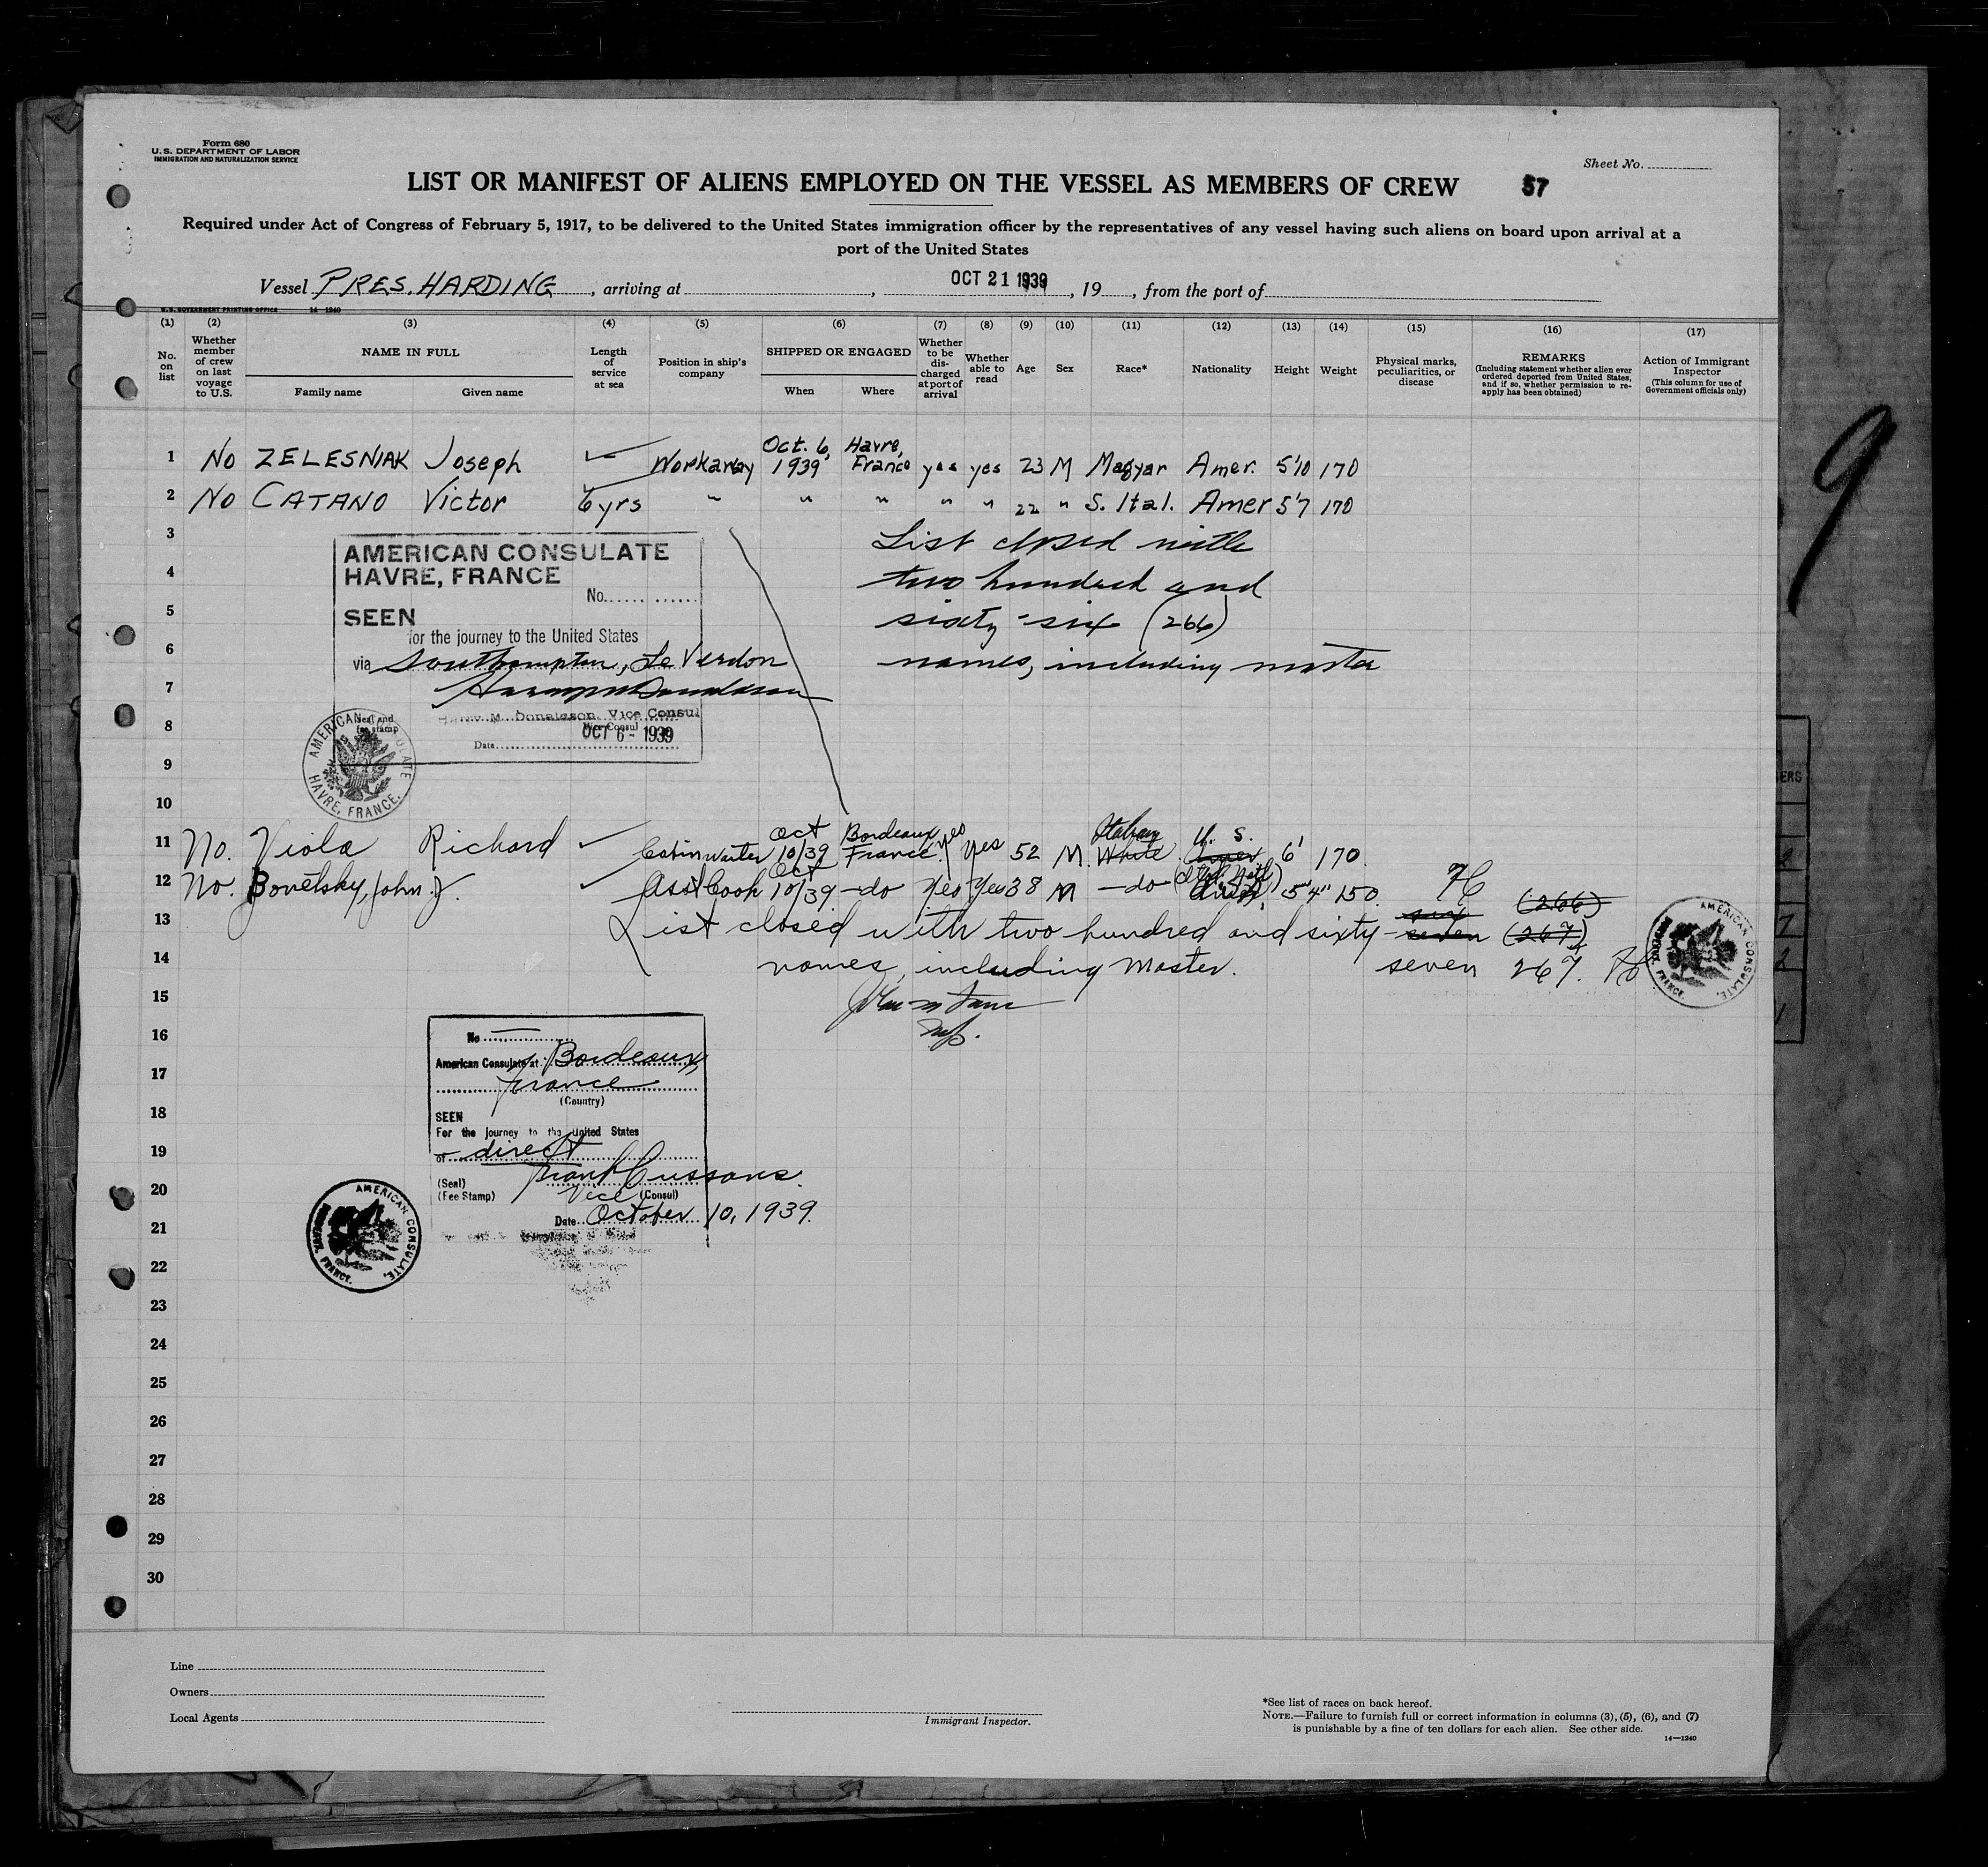 Form 680
U.S. DEPARTMENT OF LABOR
IMMIGRATION AND NATURALIZATION SERVICE
Sheet No.
LIST OR MANIFEST OF ALIENS EMPLOYED ON THE VESSEL AS MEMBERS OF CREW 57
Required under Act of Congress of February 5, 1917, to be delivered to the United States immigration officer by the representatives of any vessel having such aliens on board upon arrival at a
port of the United States
Vessel PRES. HARDING, arriving at , OCT 21 1939, 19 , from the port of
U.S. GOVERNMENT PRINTING OFFICE 14—1240
(1) (2) (3) (4) (5) (6) (7) (8) (9) (10) (11) (12) (13) (14) (15) (16) (17)
No. on list
Whether member of crew on last voyage to U.S.
NAME IN FULL
Family name Given name
Length of service at sea
Position in ship's company
SHIPPED OR ENGAGED
When Where
Whether to be discharged at port of arrival
Whether able to read
Age
Sex
Race*
Nationality
Height
Weight
Physical marks, peculiarities, or disease
REMARKS
(Including statement whether alien ever ordered deported from United States, and if so, whether permission to re-apply has been obtained)
Action of Immigrant Inspector
(This column for use of Government officials only)
1 No ZELESNIAK Joseph Workaway Oct. 6, 1939 Havre, France yes yes 23 M Magyar Amer. 5'10 170
2 No CATANO Victor 6 yrs " " " " " 22 " S. Ital. Amer 5'7 170
3
4
5
6
7
8
9
10
List closed with
two hundred and
sixty-six (266)
names, including master
AMERICAN CONSULATE
HAVRE, FRANCE
No.
SEEN
for the journey to the United States
via Southampton, Le Verdon
Harry M. Donaldson, Vice Consul
Vice Consul
Seal and fee stamp
OCT 6 - 1939
Date
AMERICAN CONSULATE HAVRE, FRANCE.
11 No. Viola Richard Cabin waiter Oct 10/39 Bordeaux France yes Yes 52 M. Italian White U. S. Amer 6' 170
12 No. Bovetsky, John J. Asst Cook Oct 10/39 -do Yes Yes 38 M -do 5'4" 150.
13 List closed with two hundred and sixty- six seven (266) (267)
14 names, including Master. seven 267.
15
16
17
18
19
20
21
22
23
24
25
26
27
28
29
30
AMERICAN CONSULATE, FRANCE.
No
American Consulate at Bordeaux,
France
(Country)
SEEN
For the journey to the United States
of direct
(Seal)
(Fee Stamp)
Vice (Consul)
Date October 10, 1939.
AMERICAN CONSULATE, FRANCE.
9
Line
Owners
Local Agents
Immigrant Inspector.
*See list of races on back hereof.
NOTE.—Failure to furnish full or correct information in columns (3), (5), (6), and (7)
is punishable by a fine of ten dollars for each alien. See other side.
14—1240